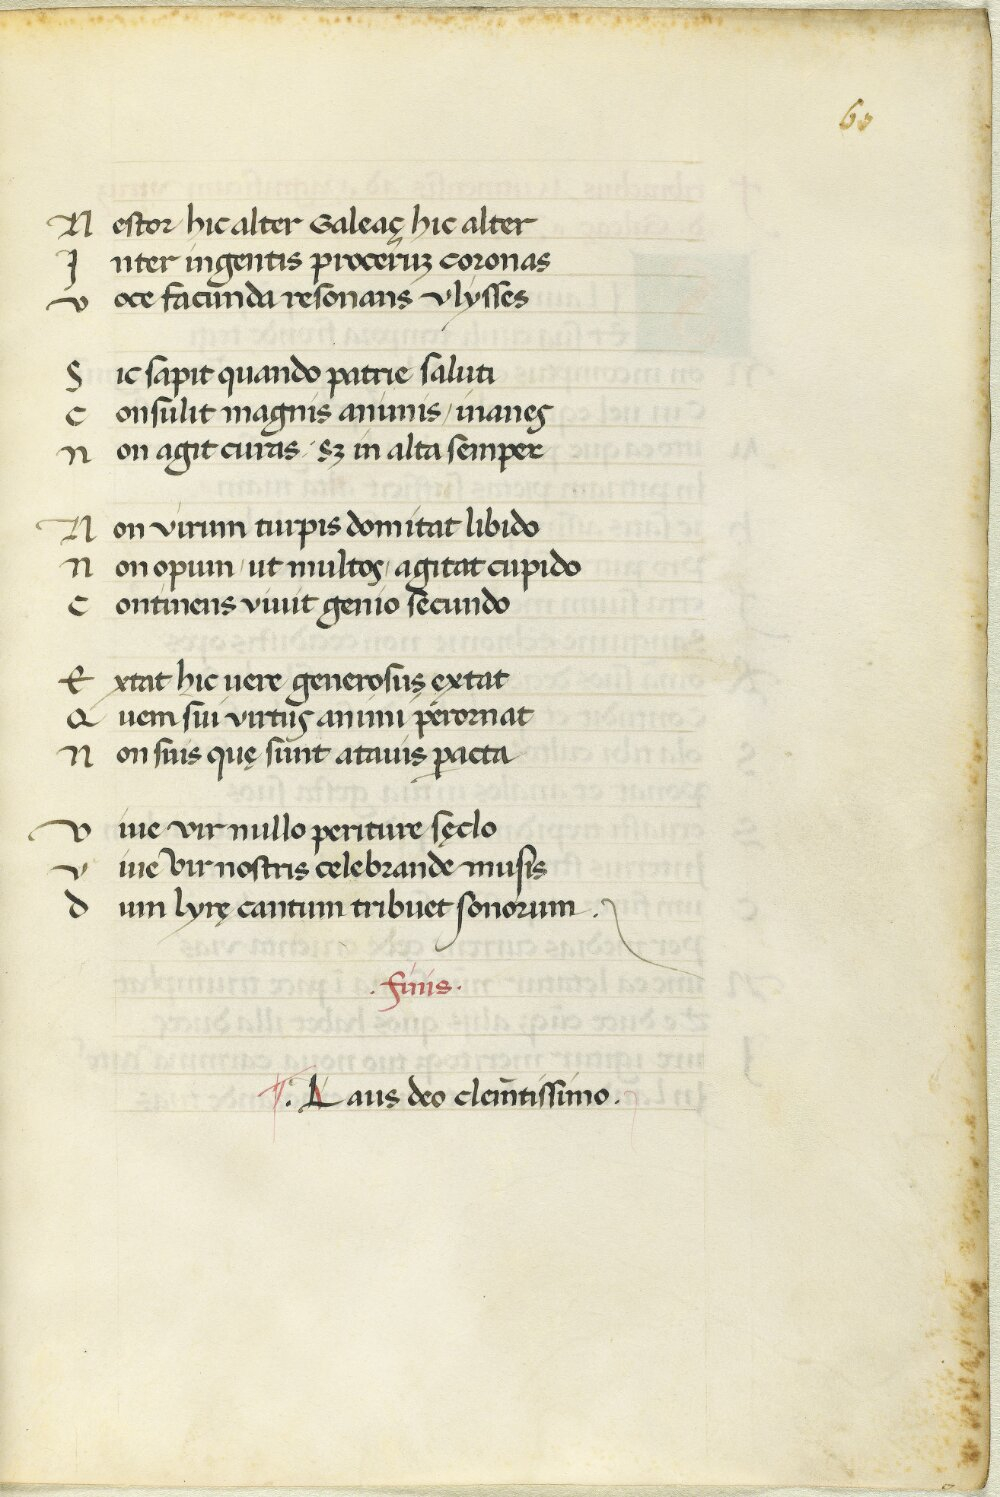 60
Nestor hic alter Galeaç hic alter
Inter ingentis proceruꝫ coronas
Voce facunda resonans vlysses
Sic sapit quando patrie saluti
Consulit magnis animis / inanes
Non agit curas : sꝫ in alta semper
Non virum turpis domitat libido
Non opum / ut multos / agitat cupido
Continens viuit genio secundo
Extat hic uere generosus extat
Quem sui virtus animi perornat
Non suis quę sunt atauis ꝑacta
Viue vir nullo periture sęclo
Viue vir nostris celebrande musis
Dum lyrę cantum tribuet sonorum .
. finis .
. Laus deo clem̄tissimo .